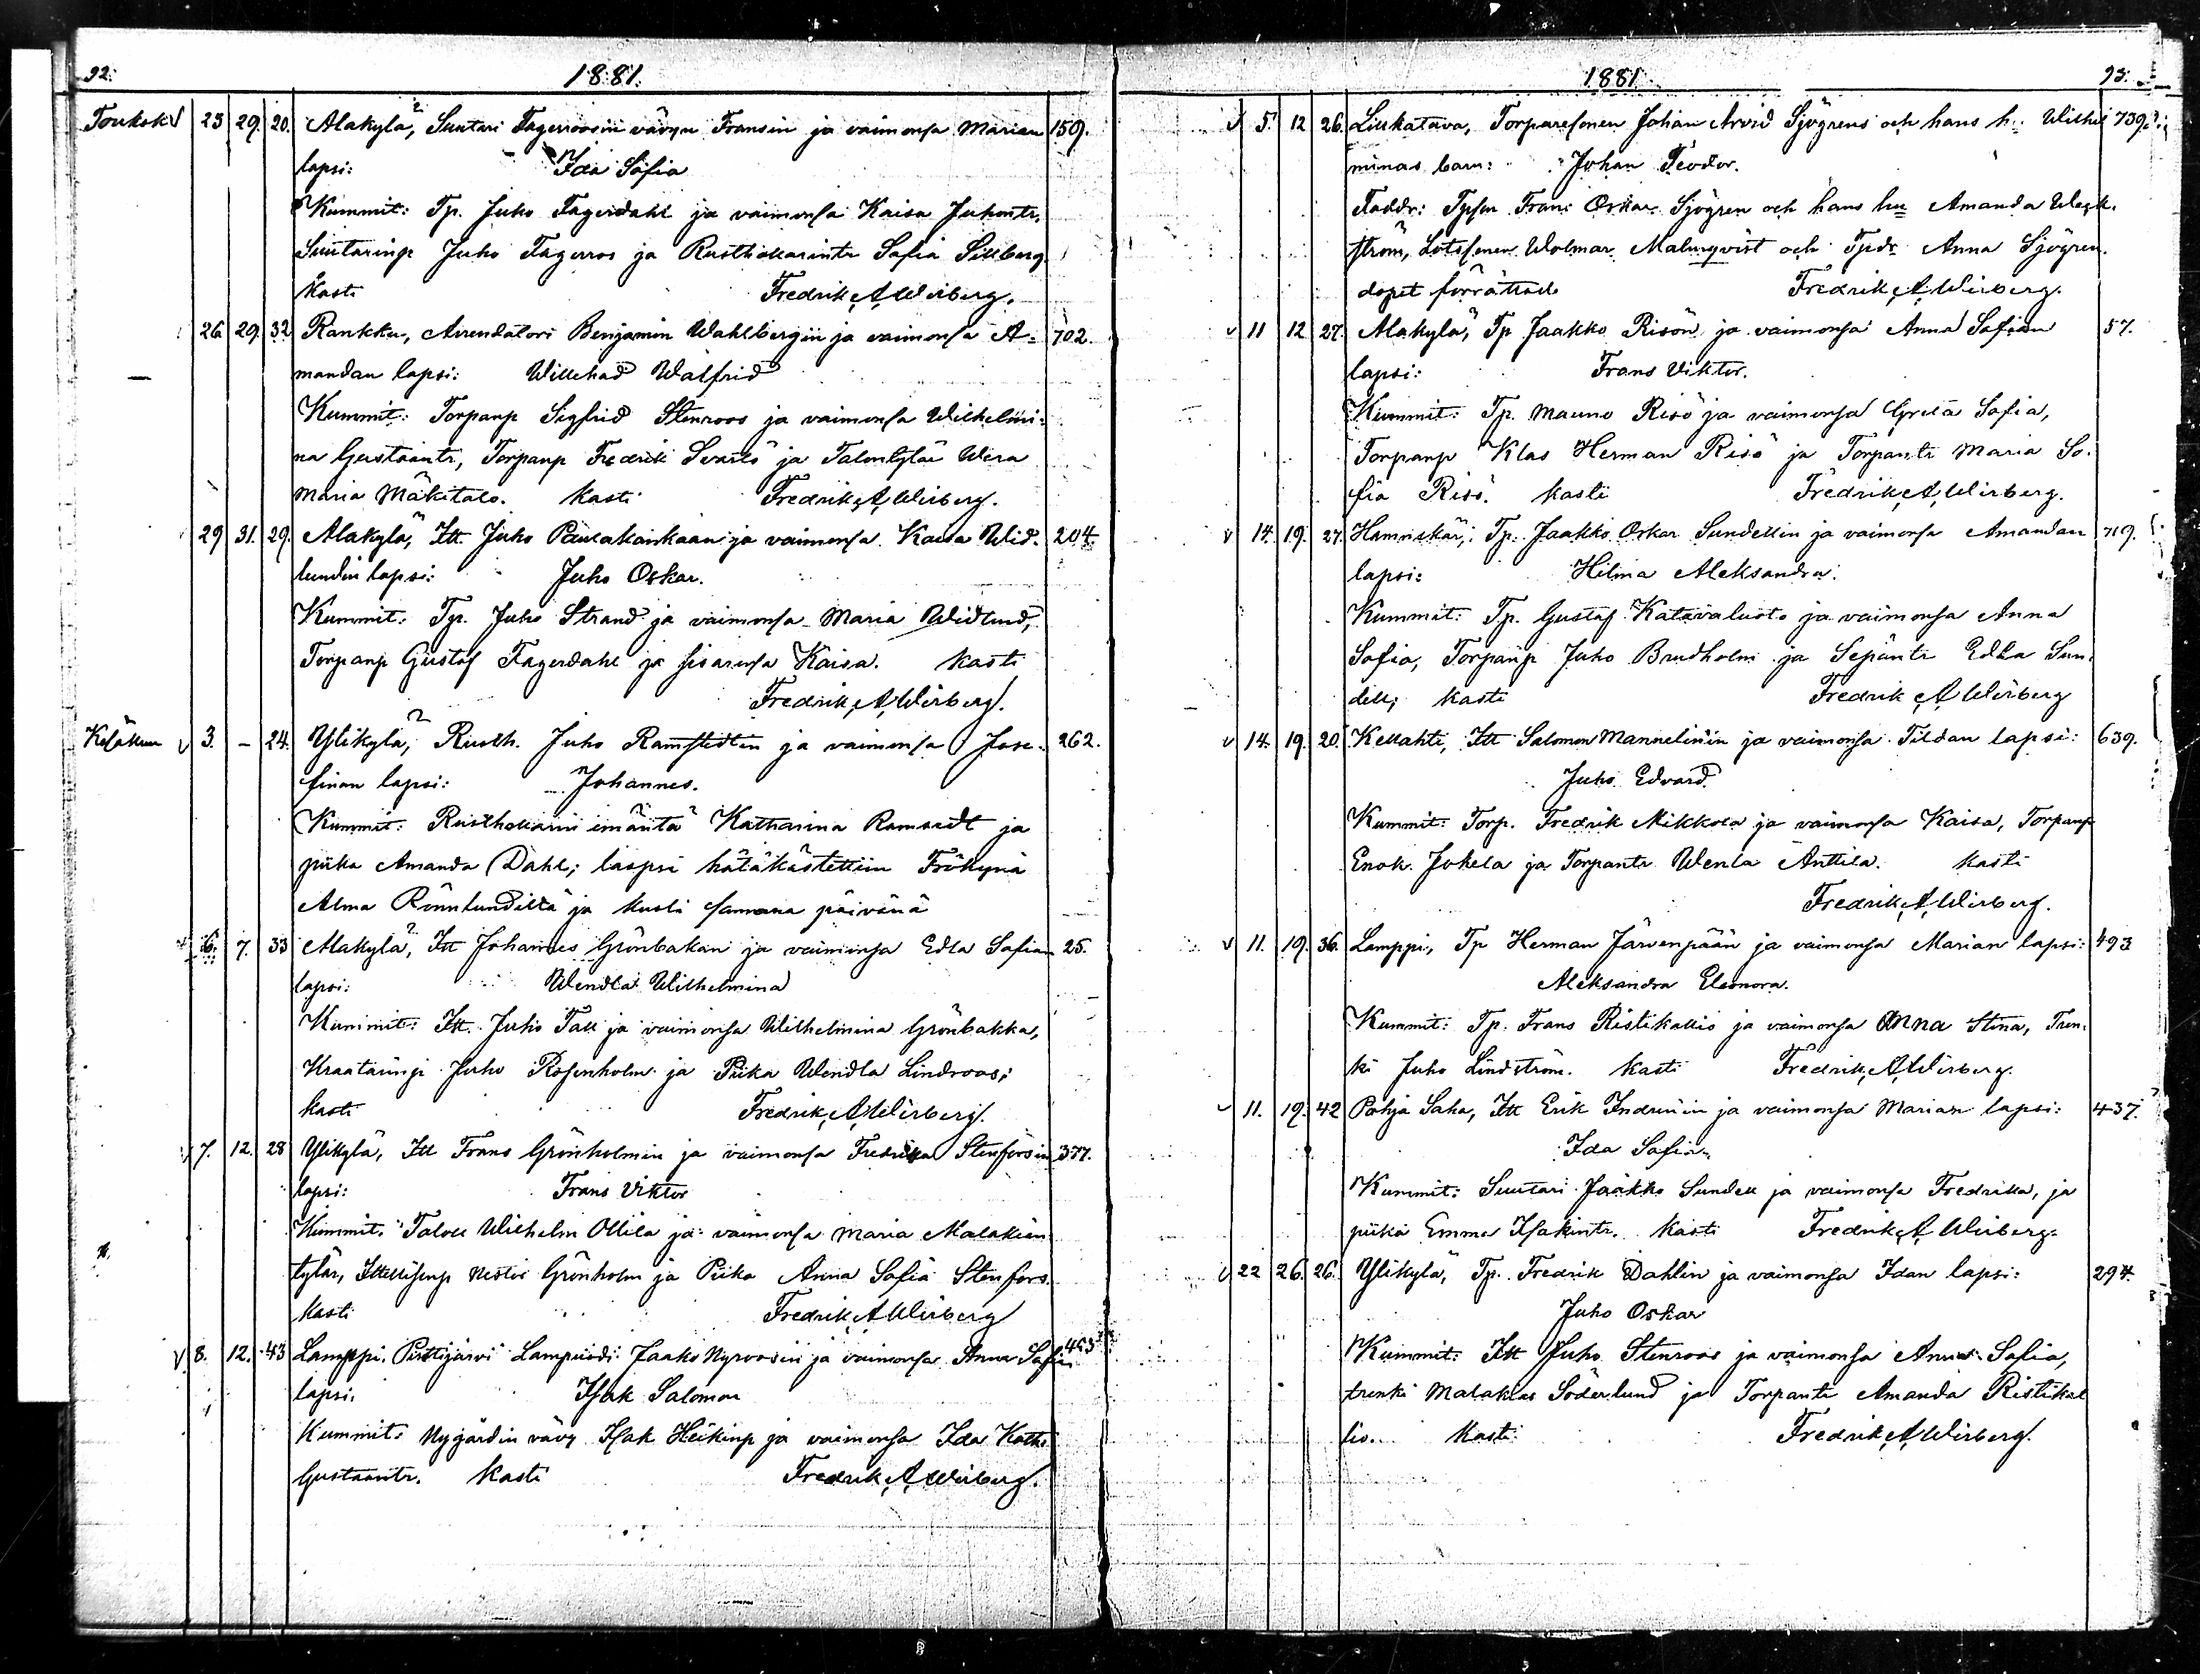 92.
1881.
Toukok. 23 29. 20. Alakylä, Suutari Fagerroosin vävyn Fransin ja vaimonsa Marian 159.
lapsi: Ida Sofia
Kummit: Tp. Juho Fagerdahl ja vaimonsa Kaisa Juhontr,
Suutarinp Juho Fagerros ja Rusthollarintr Sofia Sillberg
Kasti Fredrik A Wirberg.
26 29. 32 Rankku, Arrendatori Benjamin Wahlbergin ja vaimonsa A- 702.
mandan lapsi: Willehad Walfrid
Kummit: Torpanp Sigfrid Stenroos ja vaimonsa Wilhelmi-
na Gustaantr, Torpanp Fredrik Svarts ja Talontytär Wera
Maria Mäkitalo. Kasti Fredrik A Wirberg.
29 31. 29. Alakylä, Itt. Juho Paurakankaan ja vaimonsa Kaisa Wid- 204.
lundin lapsi: Juho Oskar.
Kummit: Tp. Juho Strand ja vaimonsa Maria Widlund,
Torpanp Gustaf Fagerdahl ja sisarensa Kaisa. Kasti
Fredrik A Wirberg.
Kesäkuu v 3. – 24. Ylikylä, Rusth. Juho Ramstedtin ja vaimonsa Jose- 262.
finan lapsi: Johannes.
Kummit: Rusthollarin emäntä Katharina Ramstedt ja
piika Amanda Dahl; laspsi hätäkastettiin Frökynä
Alma Rönnlundilta ja kuoli samana päivänä
6. 7. 33 Alakylä, Itt Johannes Grönbakan ja vaimonsa Edla Sofian 25.
lapsi: Wendla Wilhelmina
Kummit: Itt. Juho Tall ja vaimonsa Wilhelmina Grönbakka,
Kraatarinp Juho Rosenholm ja Piika Wendla Lindroos;
Kasti Fredrik A Wirberg.
v 7. 12. 28 Ylikylä, Itt Frans Grönholmin ja vaimonsa Fredrika Stenforsin 377.
lapsi: Frans Viktor
Kummit: Talon Wilhelm Ollila ja vaimonsa Maria Malakian
tytär, Ittellisenp Nestor Grönholm ja Piika Anna Sofia Stenfors.
Kasti Fredrik A Wirberg
v 8. 12. 43 Lamppi, Puttijärvi Lampuodi Jaako Nyroosin ja vaimonsa Anna Sofian 463
lapsi. Isak Salomon
Kummit: Nygårdin vävy Isak Heikinp ja vaimonsa Ida Kath.
Gustaantr. Kasti Fredrik A Wirberg.
1881.
93.
v 5. 12 26. Liukatava, Torparesonen Johan Arvid Sjögrens och hans h: Wilhel 739.
minas barn: Johan Teodor.
Faddr: Tpson Frans Oskar Sjögren och hans hu Amanda
ström, Lotssonen Wolmar Malmqvist och Tpdr Anna Sjögren.
dopet förrättade Fredrik A Wirberg.
v 11 12 27. Alakylä, Tp Jaakko Risön ja vaimonsa Anna Sofian 57.
lapsi: Frans Viktor.
Kummit: Tp. Mauno Risö ja vaimonsa Greta Sofia,
Torpanp Klas Herman Risö ja Torpantr Maria So-
fia Risö. Kasti Fredrik A Wirberg.
v 14. 19. 27. Hamnskär, Tp. Jaakko Oskar Sundellin ja vaimonsa Amandan 719.
lapsi: Hilma Aleksandra.
Kummit: Tp. Gustaf Katavaluoto ja vaimonsa Anna
Sofia, Torpanp Juho Brudholm ja Sepäntr Edla Sun-
dell; Kasti Fredrik A Wirberg
v 14. 19. 20. Kellahti, Itt Salomon Mannelinin ja vaimonsa Tildan lapsi: 639.
Juho Edvard
Kummit: Torp. Fredrik Mikkola ja vaimonsa Kaisa, Torpanp
Enok Jokela ja Torpantr Wenla Anttila. Kasti
Fredrik A Wirberg.
v 11. 19. 36. Lamppi, Tp Herman Järvenpään ja vaimonsa Marian lapsi: 493
Aleksandra Eleonora.
Kummit: Tp. Frans Ristikallio ja vaimonsa Anna Stina, Tren-
ki Juho Lindström. Kasti Fredrik A Wirberg.
v 11. 19. 42 Pohja Saha, Itt Erik Indrenin ja vaimonsa Marian lapsi: 437.
Ida Sofia.
Kummit: Suutari Jaakko Sundell ja vaimonsa Fredrika, ja
piika Emma Isakintr. Kasti Fredrik A Wirberg.
v 22 26. 26. Ylikylä, Tp. Fredrik Dahlin ja vaimonsa Idan lapsi: 294.
Juho Oskar
Kummit: Itt Juho Stenroos ja vaimonsa Anna Sofia,
trenki Malakias Söderlund ja Torpantr Amanda Ristikal
lio. Kasti Fredrik A Wirberg.